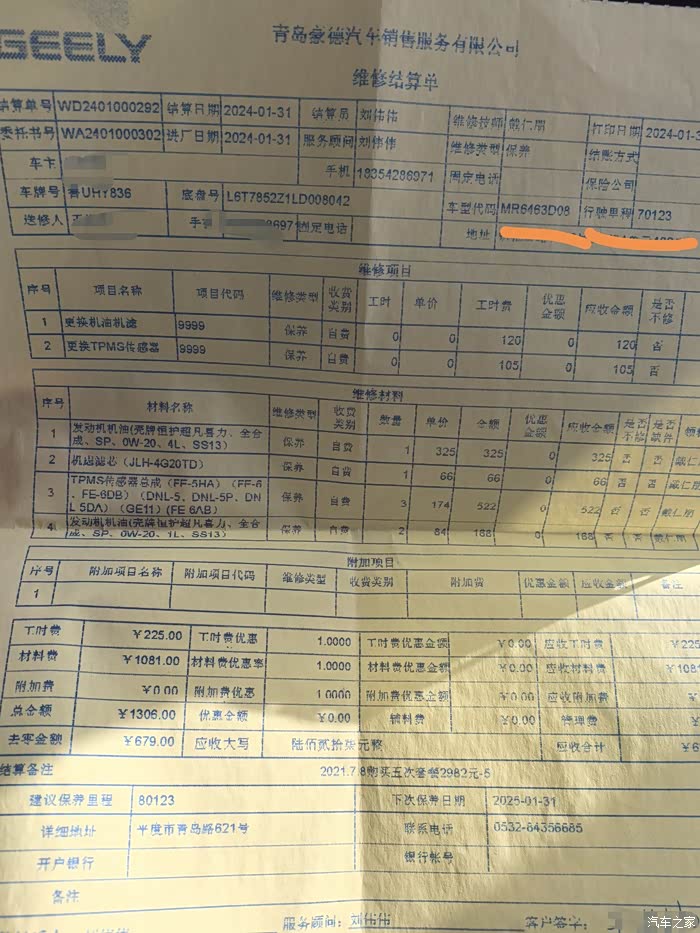 GEELY
青岛豪德汽车销售服务有限公司
维修结算单
结算单号 WD2401000292 结算日期 2024-01-31 结算员 刘伟伟 维修技师 打印日期 2024-01-3
委托书号 WA2401000302 进厂日期 2024-01-31 服务顾问 刘伟伟 维修类型 保养 结账方式
车主 手机 18354286971 固定电话 保险公司
车牌号 鲁UHY836 底盘号 L6T7852Z1LD008042 车型代码 MR6463D08 行驶里程 70123
送修人 手机 固定电话 地址
维修项目
序号 项目名称 项目代码 维修类型 收费类别 工时 单价 工时费 优惠金额 应收金额 是否不修
1 更换机油机滤 9999 保养 自费 0 0 120 0 120 否
2 更换TPMS传感器 9999 保养 自费 0 0 105 0 105 否
维修材料
序号 材料名称 维修类型 收费类别 数量 单价 金额 优惠金额 应收金额 是否不修 是否缺件
1 发动机机油(壳牌恒护超凡喜力、全合成、SP、0W-20、4L、SS13) 保养 自费 1 325 325 0 325 否 否
2 机滤滤芯（JLH-4G20TD） 保养 自费 1 66 66 0 66 否 否
3 TPMS传感器总成（FF-5HA）（FF-6、FE-6DB）（DNL-5、DNL-5P、DNL 5DA）（GE11）(FE 6AB) 保养 自费 3 174 522 0 522 否 否
4 发动机机油(壳牌恒护超凡喜力、全合成、SP、0W-20、1L、SS13) 保养 自费 2 84 168 0 168 否
附加项目
序号 附加项目名称 附加项目代码 维修类型 收费类别 附加费 优惠金额 应收金额 备注
1
工时费 ￥225.00 工时费优惠 1.0000 工时费优惠金额 ￥0.00 应收工时费 ￥225
材料费 ￥1081.00 材料费优惠率 1.0000 材料费优惠金额 ￥0.00 应收材料费 ￥1081
附加费 ￥0.00 附加费优惠 1.0000 附加费优惠金额 ￥0.00 应收附加费 ￥
总金额 ￥1306.00 优惠金额 ￥0.00 辅料费 ￥0.00 管理费 ￥
去零金额 ￥679.00 应收大写 陆佰贰拾柒元整 应收合计 ￥6
结算备注 2021.7.8购买五次套餐2982元-5
建议保养里程 80123 下次保养日期 2025-01-31
详细地址 平度市青岛路621号 联系电话 0532-84356685
开户银行 银行帐号
备注
服务顾问: 刘伟伟 客户签字:
汽车之家